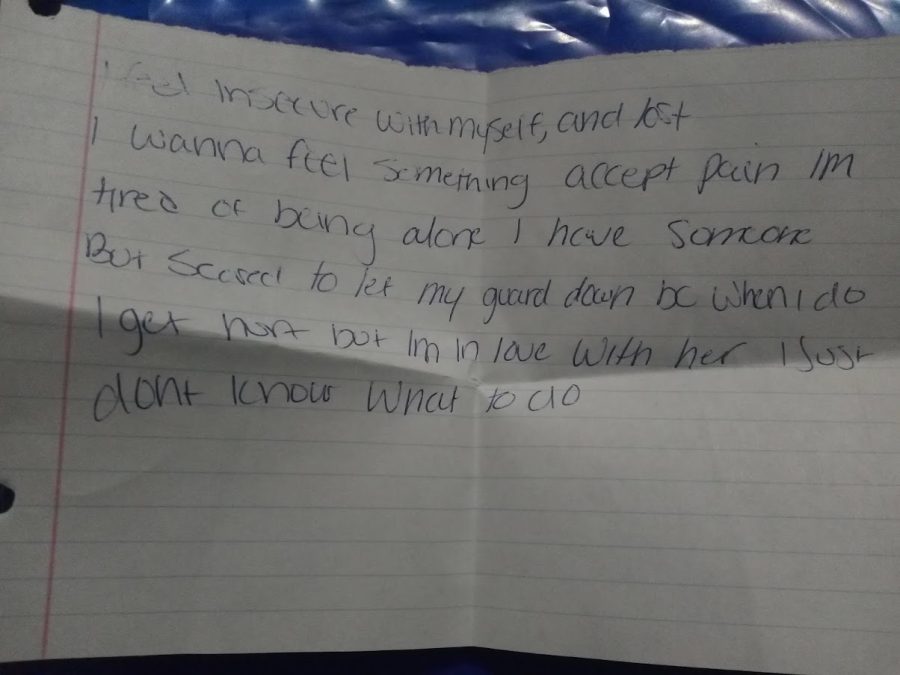 I feel insecure with myself, and lost
I wanna feel something accept pain Im
tired of being alone I have someone
But scared to let my guard down bc when i do
I get hurt but Im in love with her I Just
dont know what to do